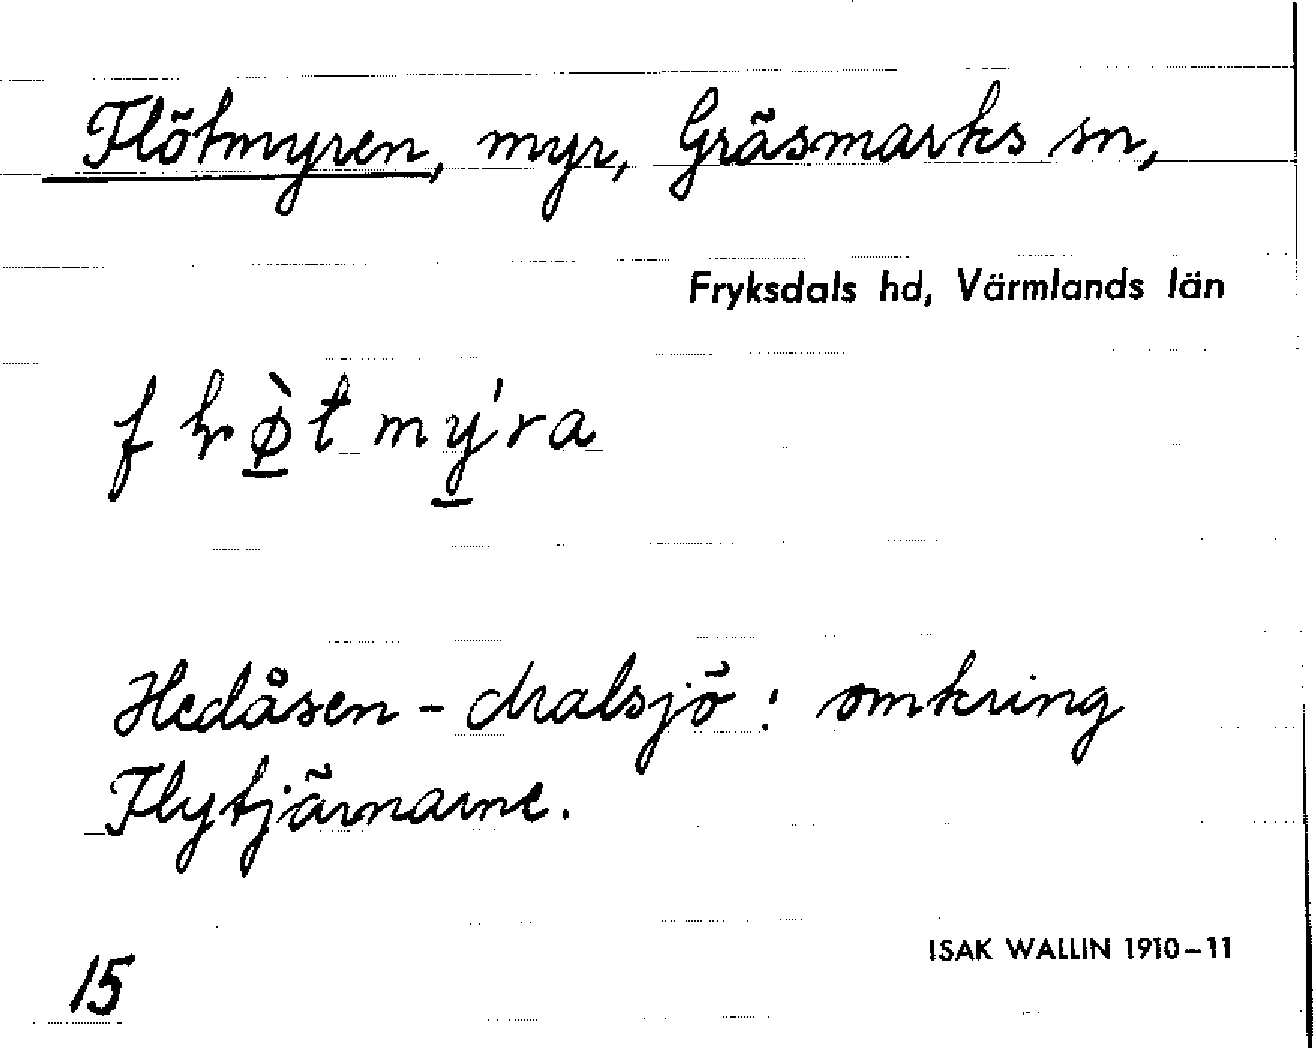 Flötmyren, myr, Gräsmarks sn,
Fryksdals hd, Värmlands län
Hedåsen - Uralsjö : omkring
Flytjärnarne.
15
ISAK WALLIN 1910-11